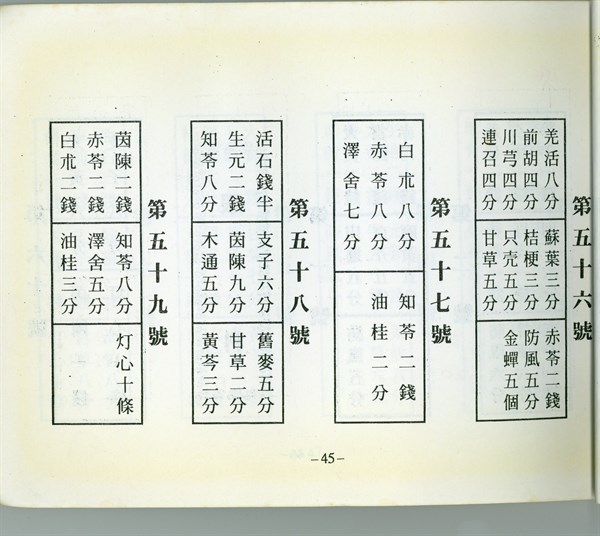 第五十六號
羌活八分 蘇葉三分 赤苓二錢
前胡四分 桔梗三分 防風五分
川芎四分 只壳五分 金蟬五個
連召四分 甘草五分
第五十七號
白朮八分 知苓二錢
赤苓八分 油桂二分
澤舍七分
第五十八號
活石錢半 支子六分 舊麥五分
生元二錢 茵陳九分 甘草二分
知苓八分 木通五分 黃芩三分
第五十九號
茵陳二錢 知苓八分 灯心十條
赤苓二錢 澤舍五分
白朮二錢 油桂三分
-45-